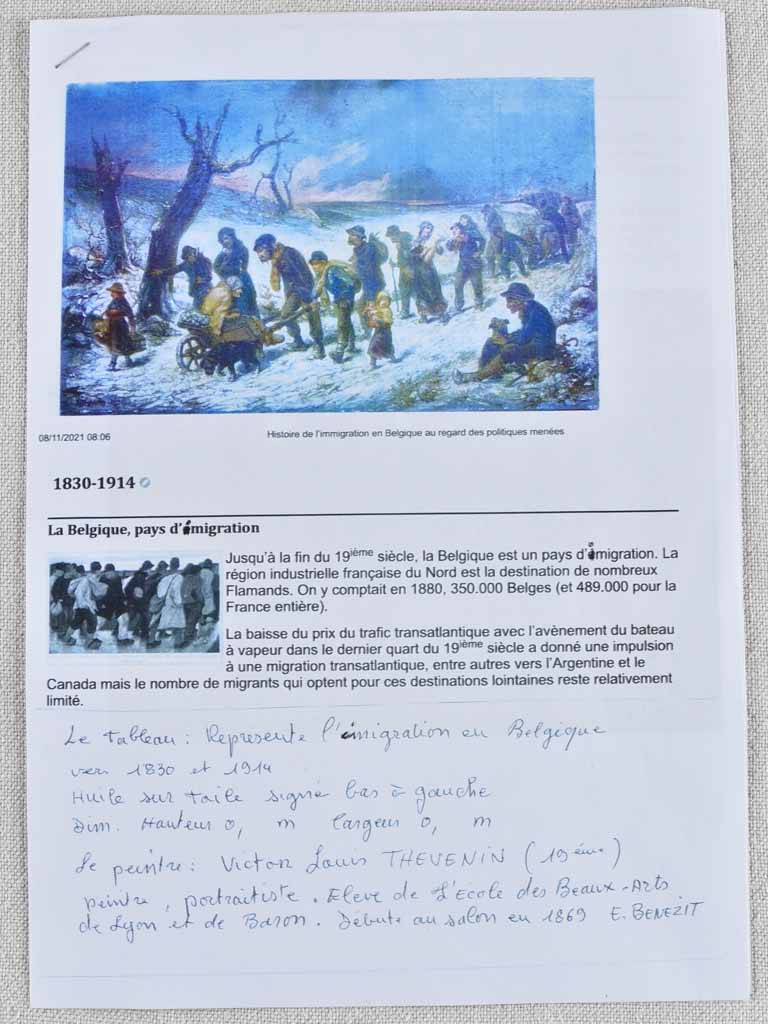 08/11/2021 08:06
Histoire de l'immigration en Belgique au regard des politiques menées
1830-1914
La Belgique, pays d'émigration
Jusqu'à la fin du 19ième siècle, la Belgique est un pays d'émigration. La
région industrielle française du Nord est la destination de nombreux
Flamands. On y comptait en 1880, 350.000 Belges (et 489.000 pour la
France entière).
La baisse du prix du trafic transatlantique avec l'avènement du bateau
à vapeur dans le dernier quart du 19ième siècle a donné une impulsion
à une migration transatlantique, entre autres vers l'Argentine et le
Canada mais le nombre de migrants qui optent pour ces destinations lointaines reste relativement
limité.
Le tableau : Represente l'émigration en Belgique
vers 1830 et 1914
Huile sur toile signé bas à gauche
Dim. Hauteur 0, m largeur 0, m
Le peintre : Victor Louis THEVENIN (19 éme)
peintre, portraitiste. Eleve de L'Ecole des Beaux-Arts
de Lyon et de Baron. Débute au salon en 1869 E. BENEZIT